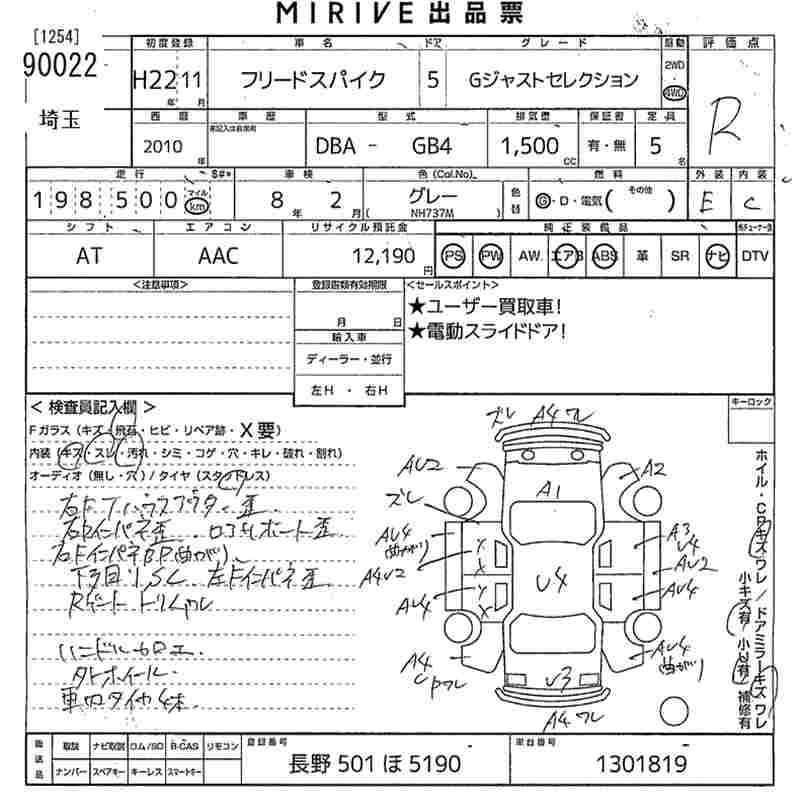 MIRIVE出品票
[1254]
90022
埼玉
初度登録 車名 ドア グレード 駆動 評価点
H22 11 年 月 フリードスパイク 5 Gジャストセレクション 2WD 4WD R
西暦 車歴 型式 排気量 保証書 定員
2010 年 DBA - GB4 1,500 CC 有・無 5 名
走行 車検 色(Col.No) 色替 燃料 外装 内装
198500 マイル km 8 年 2 月 グレー (NH737M) G・D・電気(その他) E C
シフト エアコン リサイクル預託金 純正装備品
AT AAC 12,190 円 PS PW AW. エアB ABS 革 SR ナビ DTV
<注意事項> 登録書類有効期限 <セールスポイント>
月 日 ★ユーザー買取車!
輸入車 ★電動スライドドア!
ディーラー・並行
左H ・ 右H
キーロック
< 検査員記入欄 >
Fガラス(キズ・飛石・ヒビ・リペア跡・X要)
内装(キズ・スレ・汚れ・シミ・コゲ・穴・キレ・破れ・割れ)
オーディオ(無し・穴)/タイヤ(スタッドレス)
右Rインパネ歪
右Fインパネ
曲がり
左Fインパネ歪
Rゲートトリムワレ
車内タイヤ4本
ズレ A4ワレ
AU2 A2
ズレ A1
AU4 曲がり A3 U4
A4U2 U4 AU2
AU4 AU4
A4 ワレ U3 AU4 曲がり
A4ワレ
ホイル・CPキズワレ/ドアミラーキズワレ
小キズ有・小凹有・補修有
後送品 取説 ナビ取説 ロム/SD B-CAS リモコン 登録番号 車台番号
ナンバー スペアキー キーレス スマートキー 長野 501 ほ 5190 1301819